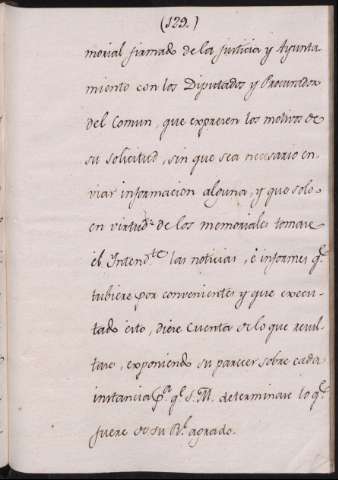 (129.)
morial firmado de la Justicia y Ayunta
miento con los Diputados y Procurador
del Comun, que expresen los motivos de
su solicitud, sin que sea necesario en
viar informacion alguna, y que solo
en virtud de los memoriales tomase
el Intend.te las noticias, è informes q.e
tubiese por convenientes y que execu
tado esto, diese cuenta de lo que resul
tase, exponiendo su parecer sobre cada
instancia p.a q.e S. M. determinase lo q.e
fuere de su R.l agrado.